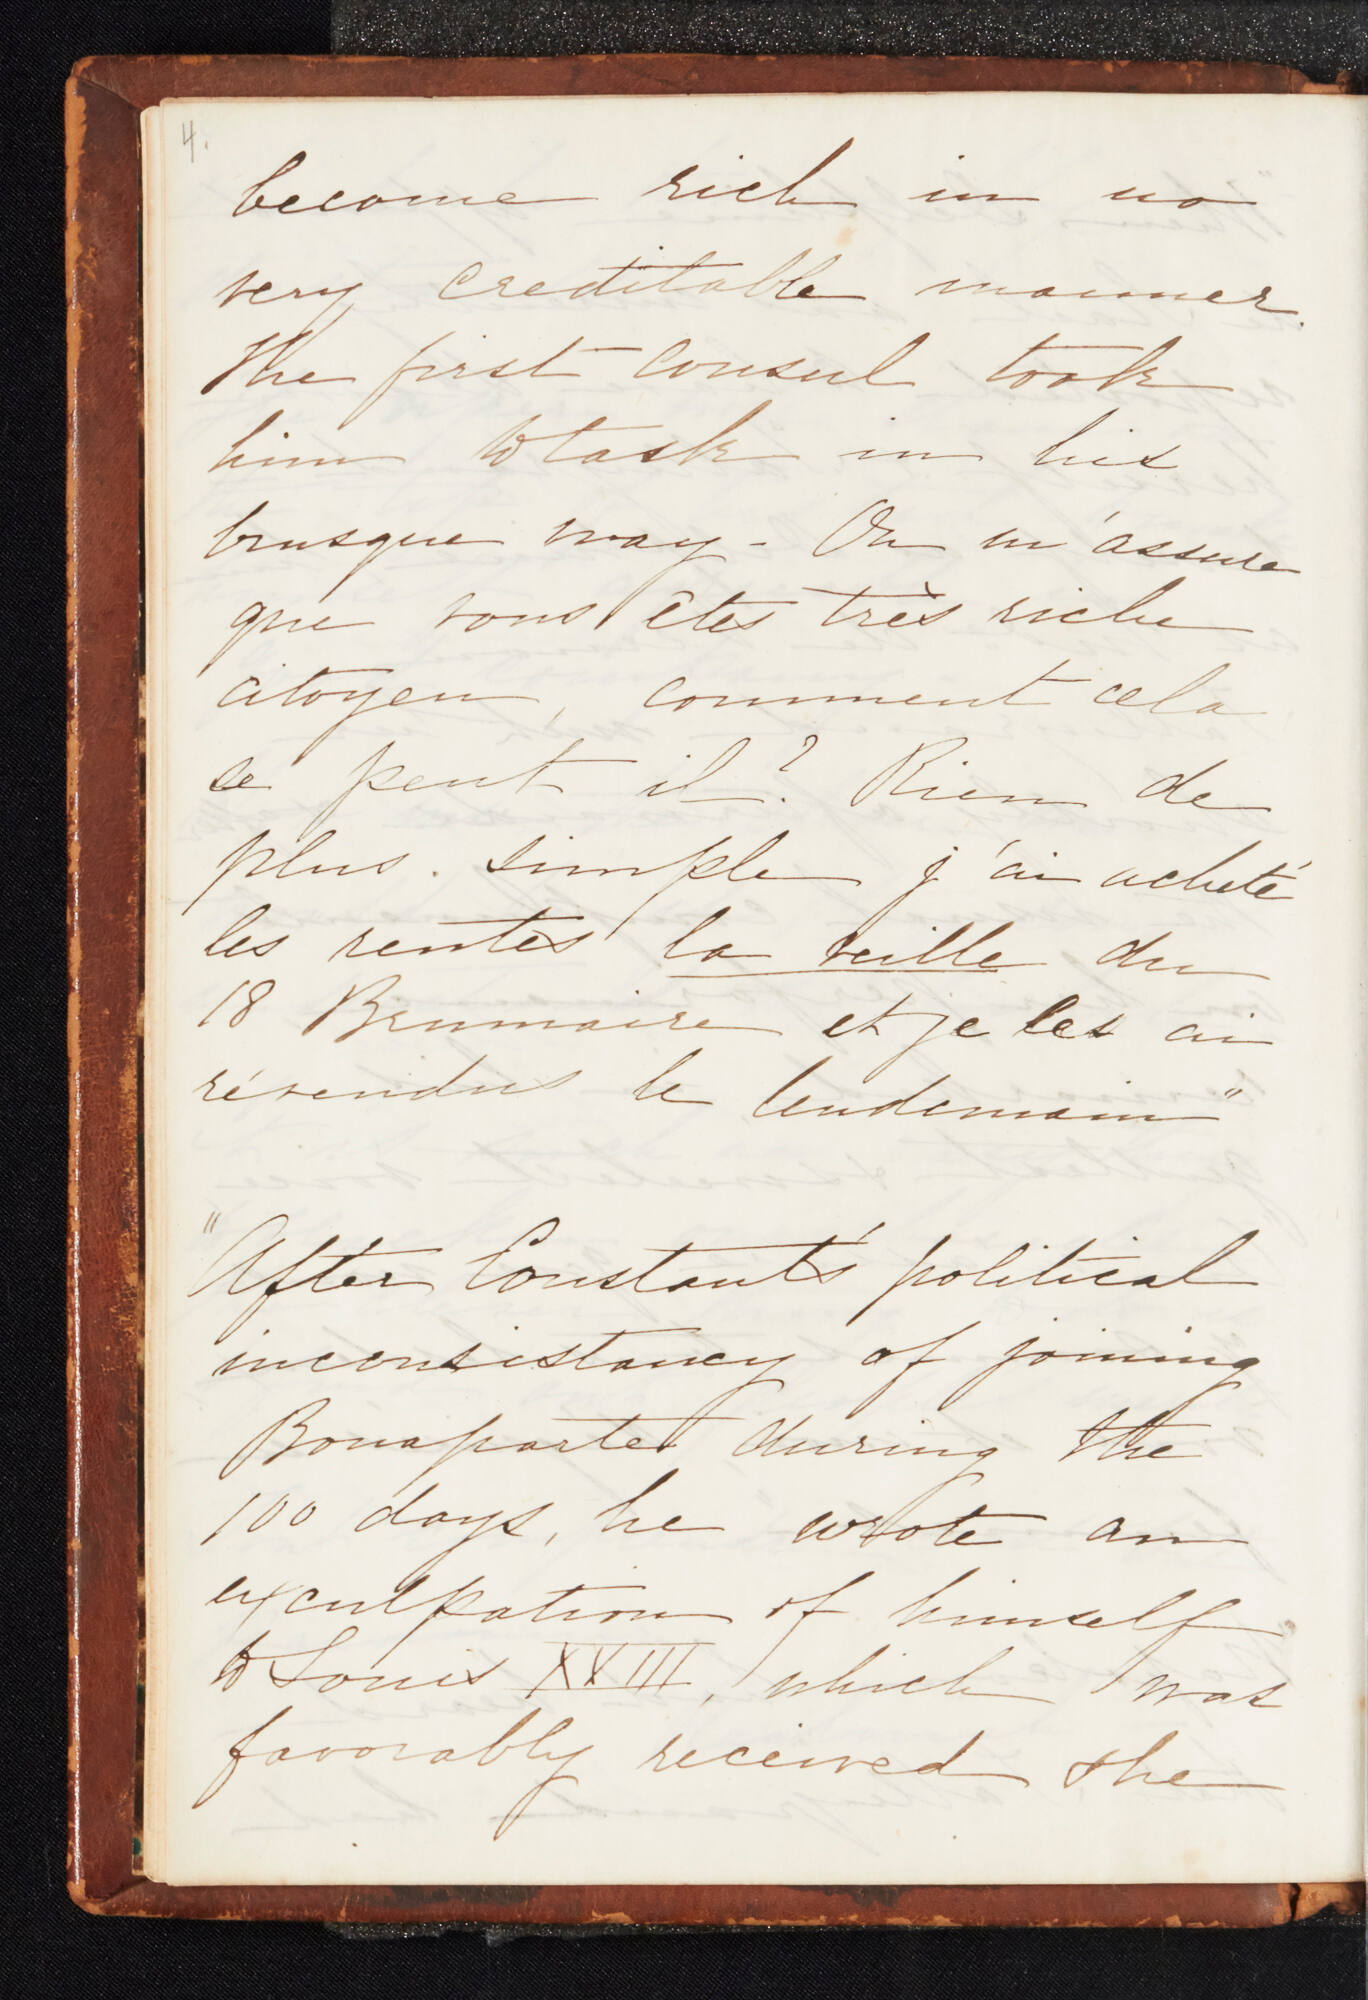 4.
become rich in no
very creditable manner.
The first consul took
him to task in his
brusque way - On m'assure
que vous êtes très riche
citoyen, comment cela
se peut il? Rien de
plus. simple j'ai acheté
les rentes la veille du
18 Brumaire et je les ai
révendus le lendemain"
"After Constant's political
inconsistancy of joining
Bonaparte during the
100 days, he wrote an
exculpation of himself
to Louis XVIII, which was
favorably received the